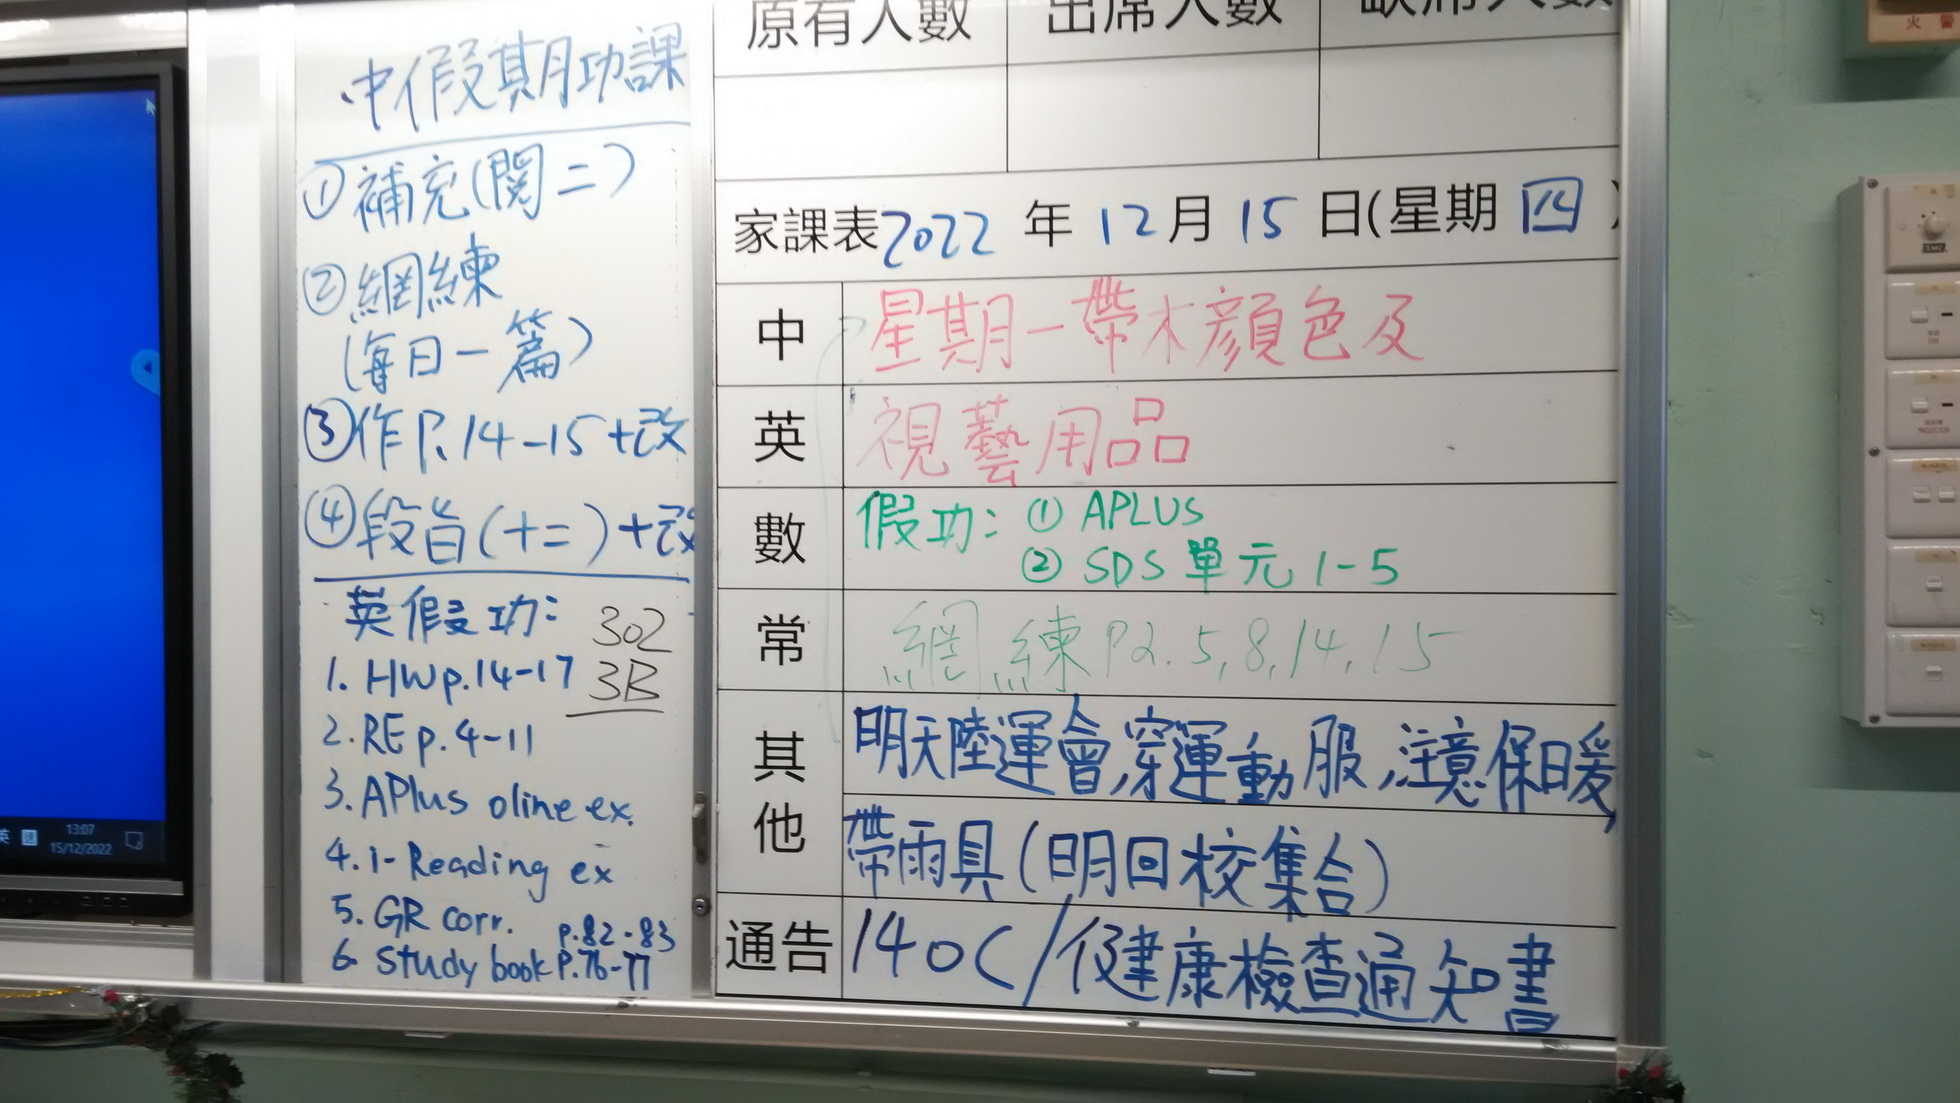 中假期功課
①補充(閱二)
②網練
(每日一篇)
③作P.14-15+改
④段旨(十二)+改
英假功:
302
3B
1. HWp.14-17
2. RE p. 4-11
3. APlus oline ex.
4. i-Reading ex
5. GR corr.
6 Study book p.82-83
P.76-77
原有人數 出席人數 缺席人數
家課表2022年12月15日(星期四)
中 星期一帶木顏色及
英 視藝用品
數 假功:①APLUS
②SDS單元1-5
常 網練P2.5,8,14,15
其他 明天陸運會,穿運動服,注意保暖
帶雨具(明回校集合)
通告 140C/健康檢查通知書
英
13:07
15/12/2022
火警